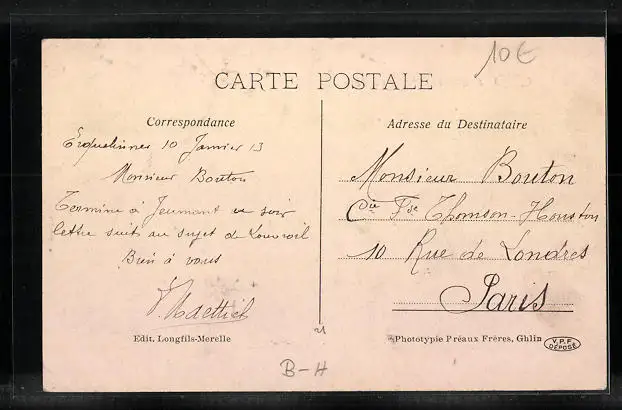 10€
CARTE POSTALE
Correspondance
Adresse du Destinataire
Erquelinnes 10 Janvier 13
Monsieur Bouton
Terminé à Jeumont ce soir
lettre suit au sujet de Louvroil
Bien à vous
Monsieur Bouton
Cie Fse Thomson-Houston
10 Rue de Londres
Paris
Edit. Longfils-Merelle
Phototypie Préaux Frères, Ghlin
V.P.F.
DÉPOSÉ
B-H